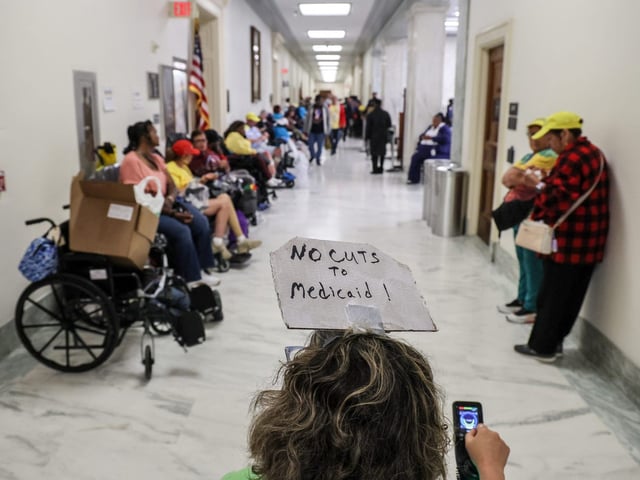 EXIT
NO CUTS
TO
Medicaid!